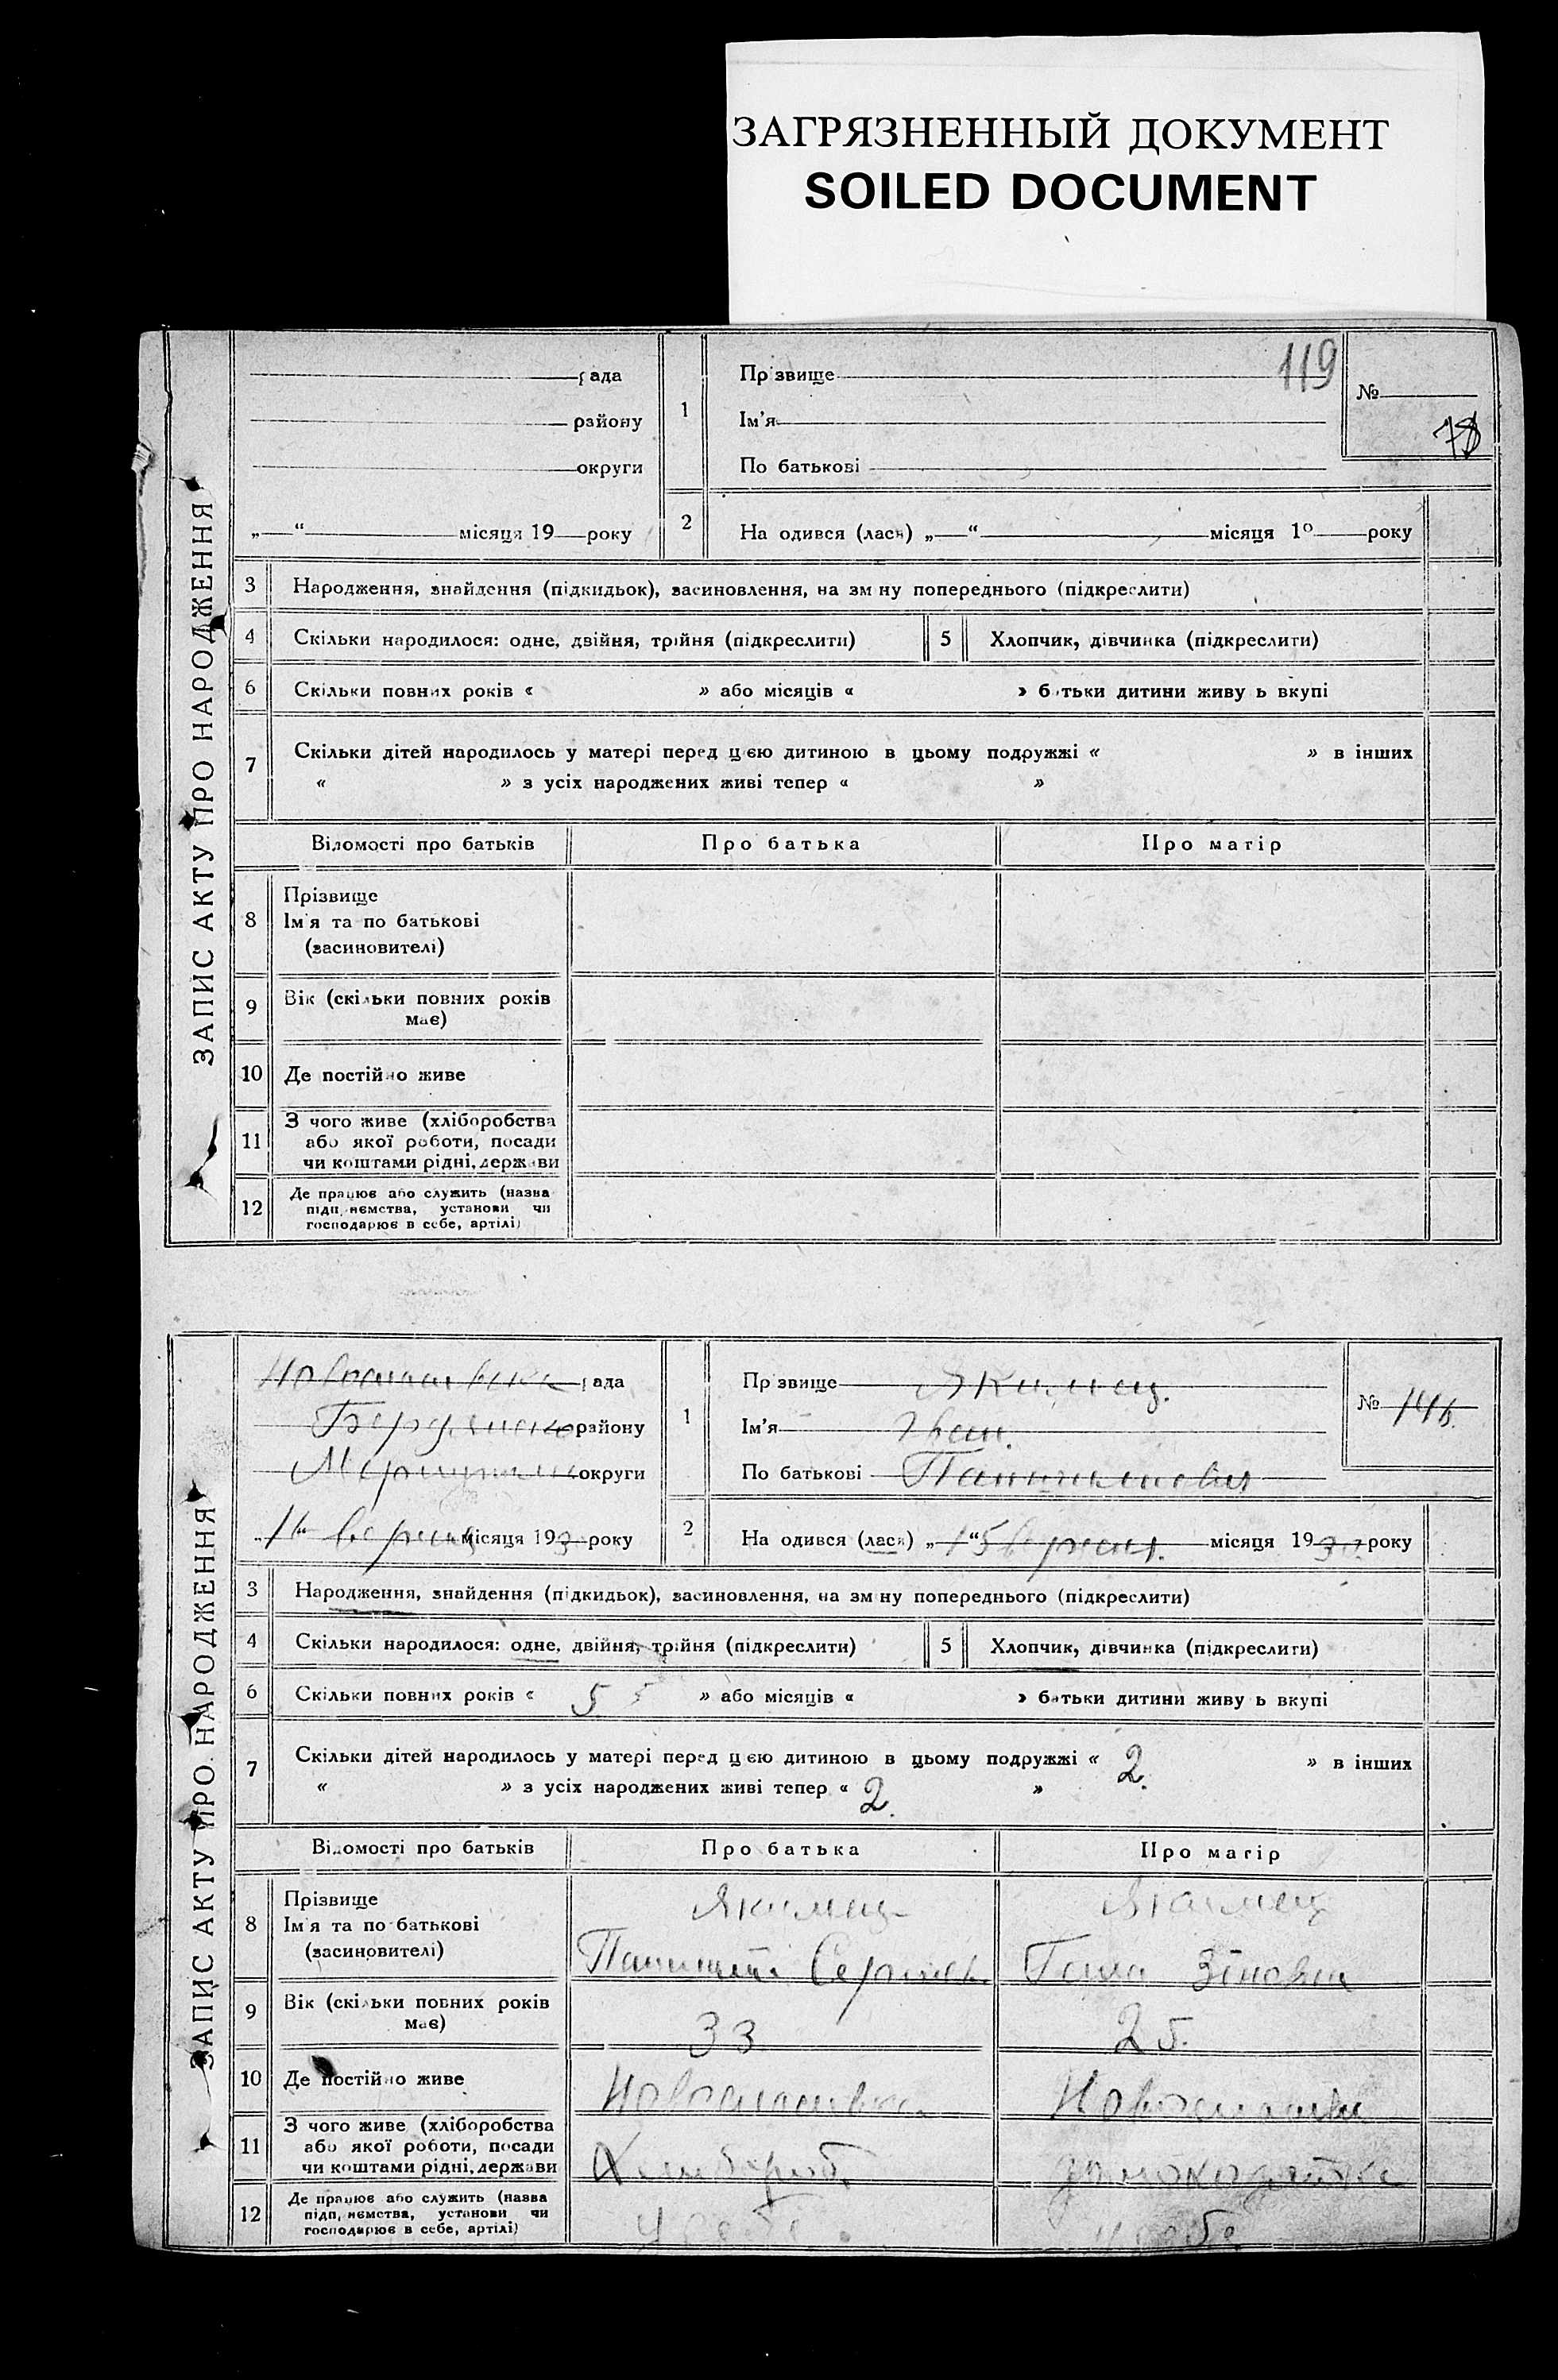 ЗАГРЯЗНЕННЫЙ ДОКУМЕНТ
SOILED DOCUMENT
119
ЗАПИС АКТУ ПРО НАРОДЖЕННЯ
рада
району
округи
„ “ місяця 19 року
1
Прізвище
Ім'я
По батькові
№
78
2 На одився (лася) „ “ місяця 19 року
3 Народження, знайдення (підкидьок), засиновлення, на зм ну попереднього (підкреслити)
4 Скільки народилося: одне, двійня, трійня (підкреслити) 5 Хлопчик, дівчинка (підкреслити)
6 Скільки повних років « » або місяців « » батьки дитини живу ь вкупі
7 Скільки дітей народилось у матері перед цією дитиною в цьому подружжі « » в інших
« » з усіх народжених живі тепер « »
Відомості про батьків Про батька Про матір
8 Прізвище
Ім'я та по батькові
(засиновителі)
9 Вік (скільки повних років
має)
10 Де постійно живе
11 З чого живе (хліборобства
або якої роботи, посади
чи коштами рідні, держави
12 Де працює або служить (назва
підприємства, установи чи
господарює в себе, артілі)
ЗАПИС АКТУ ПРО НАРОДЖЕННЯ
рада
Бердянсько району
округи
„ “ місяця 193 року
1
Прізвище Якимец.
Ім'я Іван.
По батькові
№ 146.
2 На одився (лася) „15“ вересня. місяця 1930 року
3 Народження, знайдення (підкидьок), засиновлення, на зм ну попереднього (підкреслити)
4 Скільки народилося: одне, двійня, трійня (підкреслити) 5 Хлопчик, дівчинка (підкреслити)
6 Скільки повних років « 5 5 » або місяців « » батьки дитини живу ь вкупі
7 Скільки дітей народилось у матері перед цією дитиною в цьому подружжі « 2. » в інших
« » з усіх народжених живі тепер « 2. »
Відомості про батьків Про батька Про матір
8 Прізвище Якимец Якимец
Ім'я та по батькові
(засиновителі)
9 Вік (скільки повних років 33 25.
має)
10 Де постійно живе
11 З чого живе (хліборобства
або якої роботи, посади
чи коштами рідні, держави
12 Де працює або служить (назва у себе у себе
підприємства, установи чи
господарює в себе, артілі)